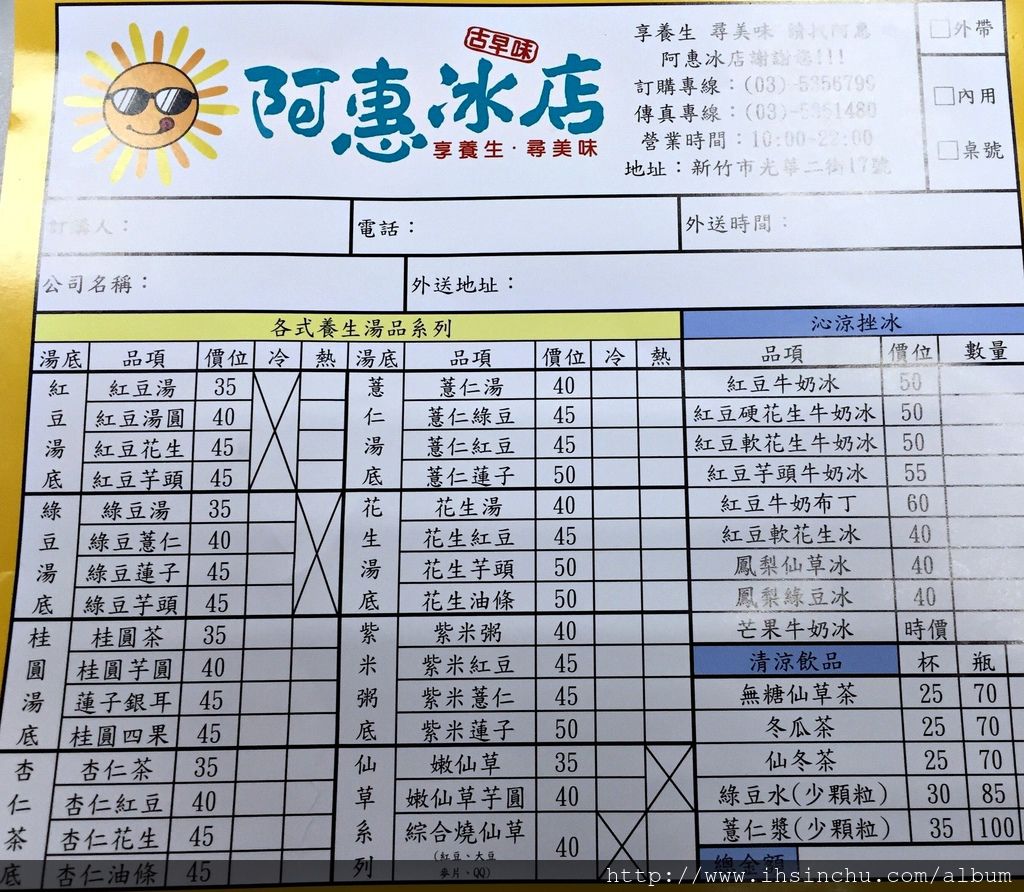 古早味
阿惠冰店
享養生‧尋美味
享養生 尋美味 請找阿惠
阿惠冰店謝謝您!!!
訂購專線：(03)-5356799
傳真專線：(03)-5351480
營業時間：10:00-22:00
地址：新竹市光華二街17號
□外帶
□內用
□桌號
訂購人： 電話： 外送時間：
公司名稱： 外送地址：
各式養生湯品系列
湯底 品項 價位 冷 熱
紅豆湯底
紅豆湯 35
紅豆湯圓 40
紅豆花生 45
紅豆芋頭 45
綠豆湯底
綠豆湯 35
綠豆薏仁 40
綠豆蓮子 45
綠豆芋頭 45
桂圓湯底
桂圓茶 35
桂圓芋圓 40
蓮子銀耳 45
桂圓四果 45
杏仁茶底
杏仁茶 35
杏仁紅豆 40
杏仁花生 45
杏仁油條 45
湯底 品項 價位 冷 熱
薏仁湯底
薏仁湯 40
薏仁綠豆 45
薏仁紅豆 45
薏仁蓮子 50
花生湯底
花生湯 40
花生紅豆 45
花生芋頭 50
花生油條 50
紫米粥底
紫米粥 40
紫米紅豆 45
紫米薏仁 45
紫米蓮子 50
仙草系列
嫩仙草 35
嫩仙草芋圓 40
綜合燒仙草 40
(紅豆、大豆
麥片、QQ)
沁涼挫冰
品項 價位 數量
紅豆牛奶冰 50
紅豆硬花生牛奶冰 50
紅豆軟花生牛奶冰 50
紅豆芋頭牛奶冰 55
紅豆牛奶布丁 60
紅豆軟花生冰 40
鳳梨仙草冰 40
鳳梨綠豆冰 40
芒果牛奶冰 時價
清涼飲品 杯 瓶
無糖仙草茶 25 70
冬瓜茶 25 70
仙冬茶 25 70
綠豆水(少顆粒) 30 85
薏仁漿(少顆粒) 35 100
總金額
http://www.ihsinchu.com/album